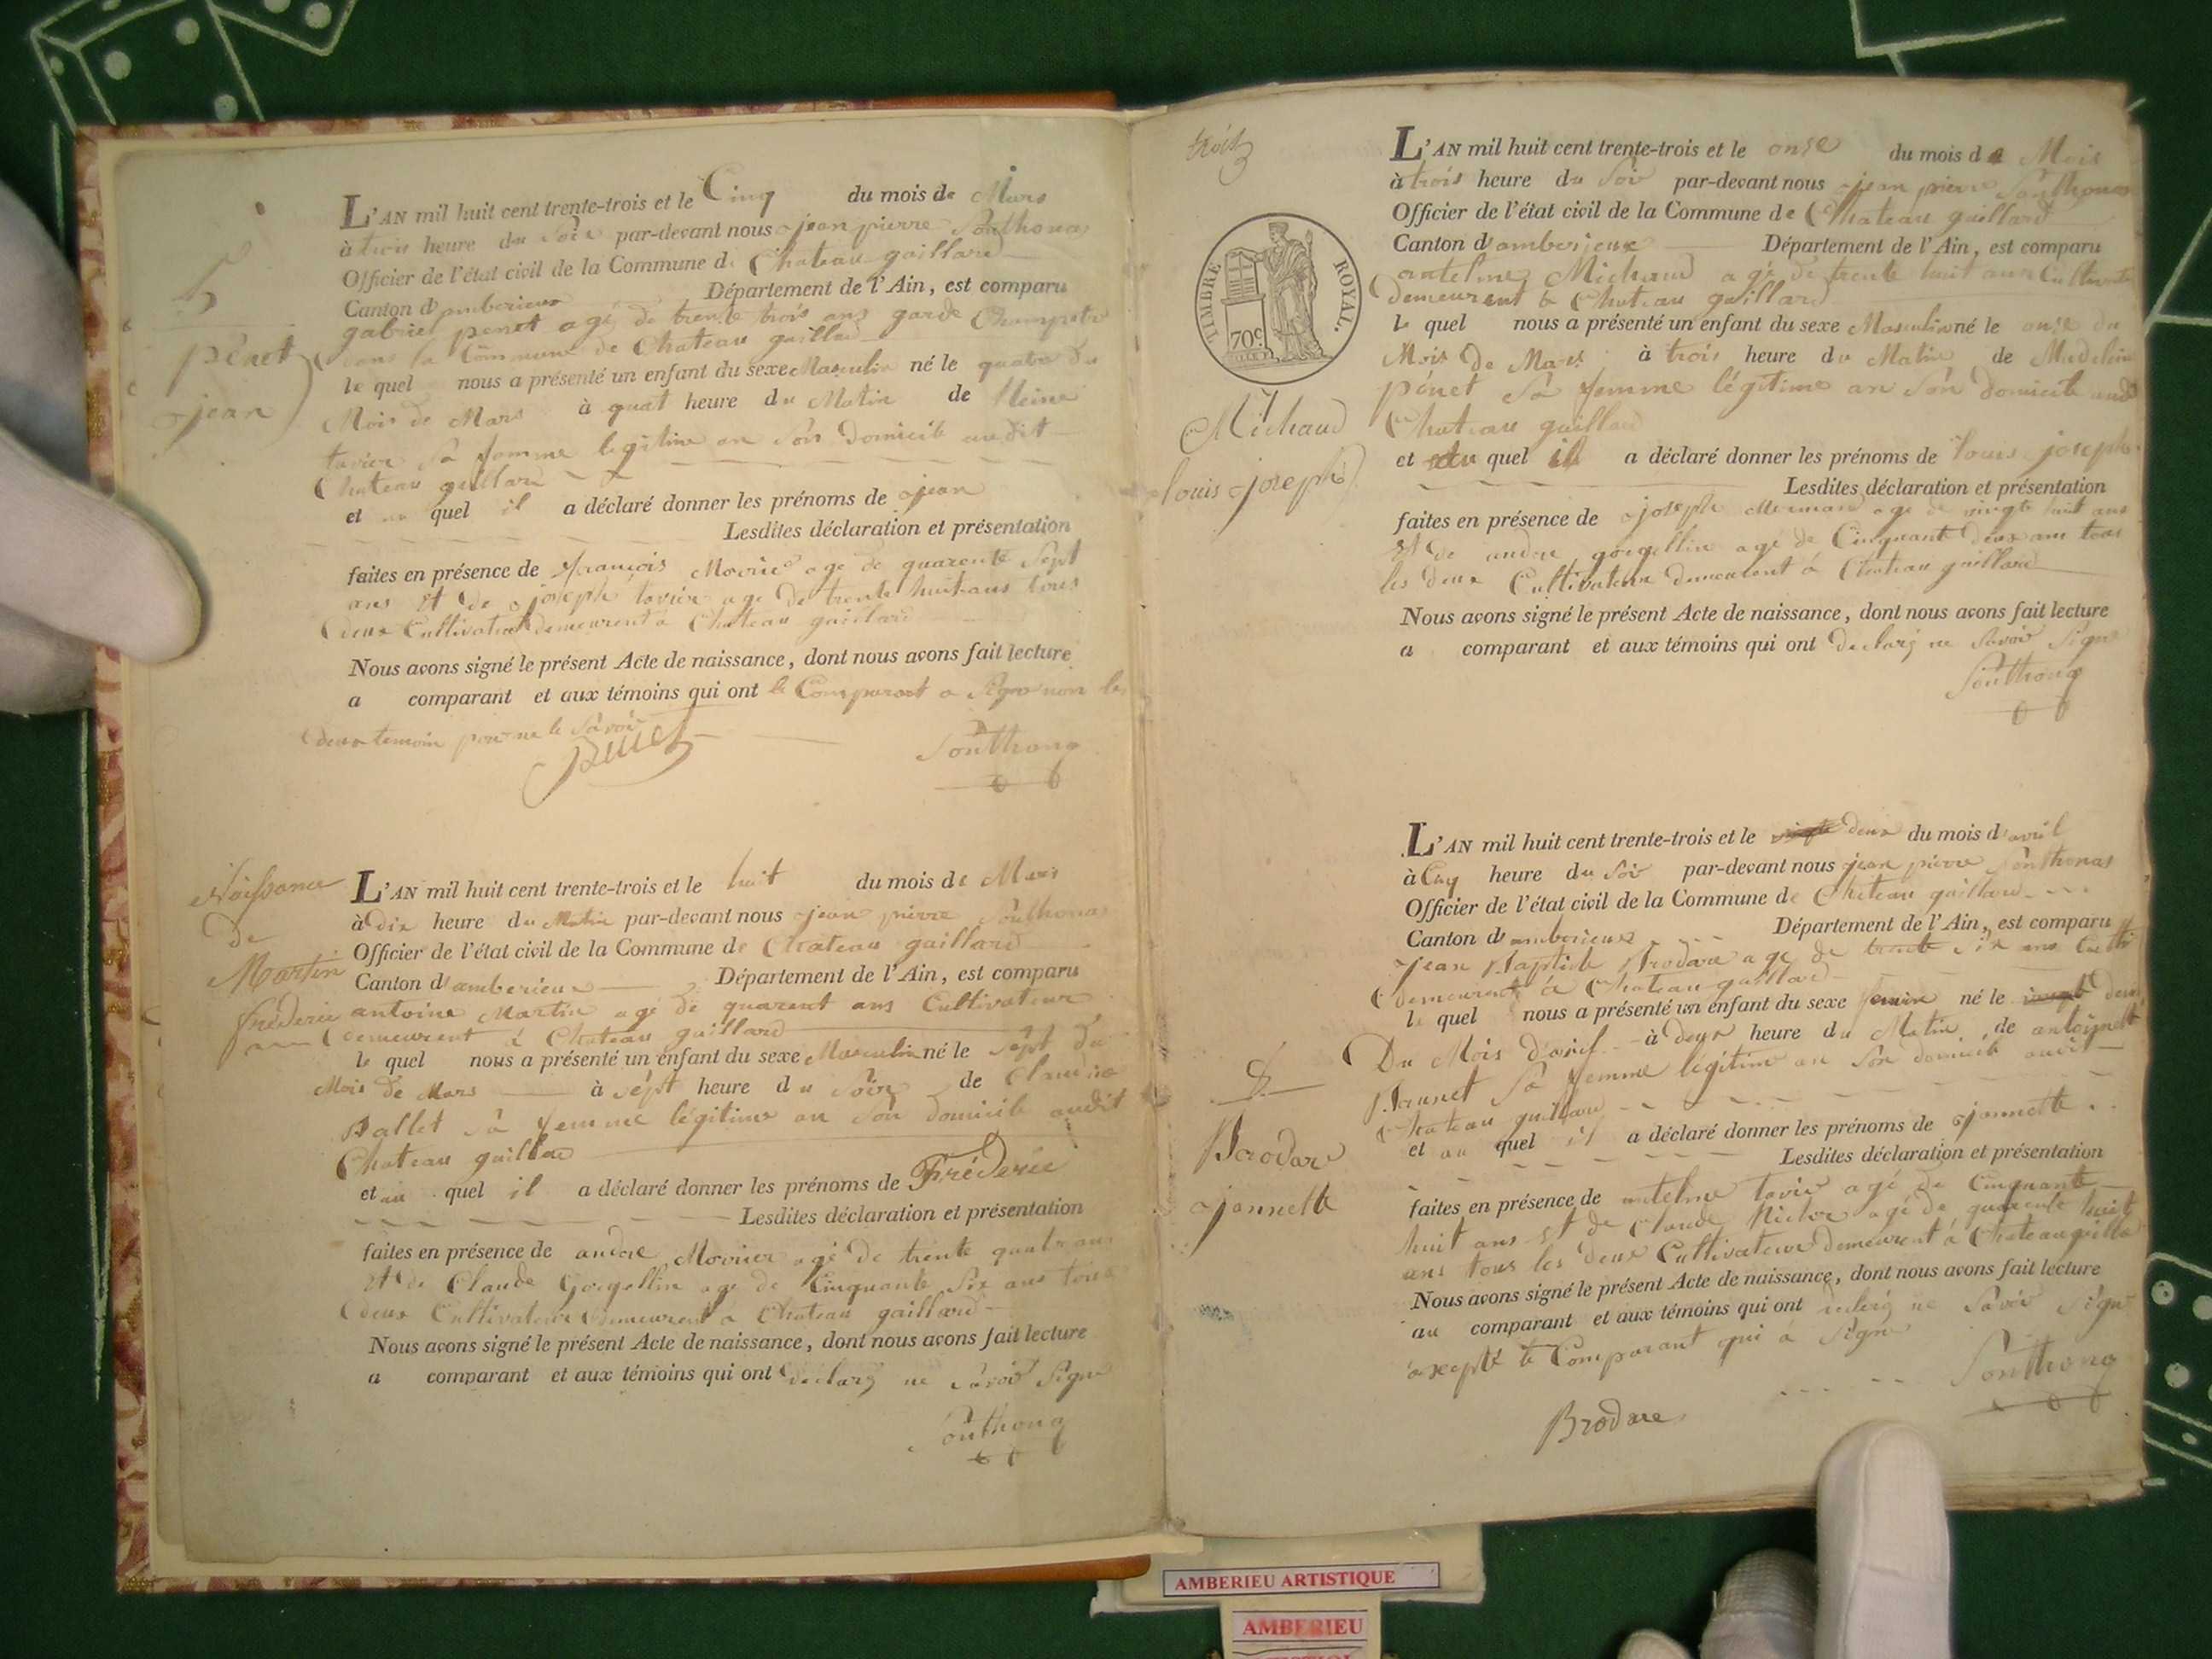 5
penet
jean
L'AN mil huit cent trente-trois et le Cinq du mois de Mars
à trois heure du Soir par-devant nous jean pierre Sonthonas
Officier de l'état civil de la Commune de Chateau gaillard
Canton d'amberieux Département de l'Ain, est comparu
gabriel penet agé de trente trois ans garde Champetre
dans la Commune de Chateau gaillard
le quel nous a présenté un enfant du sexe Masculin né le quatre du
Mois de Mars à quat heure du Matin de
tavier Sa femme legitime an Son Domicile audit
Chateau gaillard
et au quel il a déclaré donner les prénoms de jean
Lesdites déclaration et présentation
faites en présence de francois age de quarente Sept
ans Et de joseph tavier age de trente huit ans tous
deux Cultivateur demeurent a Chateau gaillard
Nous avons signé le présent Acte de naissance, dont nous avons fait lecture
a comparant et aux témoins qui ont le Comparant a Signe non les
deux temoin pour ne le Savoir
Penet Sonthonas
Naissance
de
Martin
fréderic
L'AN mil huit cent trente-trois et le huit du mois de Mars
à dix heure du Matin par-devant nous jean pierre Sonthonas
Officier de l'état civil de la Commune de Chateau gaillard
Canton d'amberieux Département de l'Ain, est comparu
antoine Martin agé de quarent ans Cultivateur
demeurent à Chateau gaillard
le quel nous a présenté un enfant du sexe Masculin né le sept du
Mois de Mars à sept heure du Soir de Claudine
Ballet Sa femme légitime an Son Domicile audit
Chateau gaillar
et au quel il a déclaré donner les prénoms de Fréderic
Lesdites déclaration et présentation
faites en présence de andre agé de trente quatre ans
Et de Claude Gorgellin age de Cinquante Six ans tous
deux Cultivateur demeurent a Chateau gaillard
Nous avons signé le présent Acte de naissance, dont nous avons fait lecture
a comparant et aux témoins qui ont declaré ne Savoir Signe
Sonthonas
trois
TIMBRE ROYAL.
70c.
7
Michaud
louis joseph
L'AN mil huit cent trente-trois et le onze du mois de Mois
à trois heure du Soir par-devant nous jean pierre Sonthonas
Officier de l'état civil de la Commune de Chateau gaillard
Canton d'amberieux Département de l'Ain, est comparu
antelme Michaud agé de trente huit ans Cultivateur
demeurent à Chateau gaillard
le quel nous a présenté un enfant du sexe Masculin né le onze du
Mois de Mars à trois heure du Matin de Madelein
pénet Sa femme légitime an Son domicile audit
Chateau gaillard
et au quel il a déclaré donner les prénoms de louis joseph
Lesdites déclaration et présentation
faites en présence de joseph age de vingt huit ans
Et de andre gorgellin agé de Cinquant deux ans tous
les deux Cultivateur demeurent à Chateau gaillard
Nous avons signé le présent Acte de naissance, dont nous avons fait lecture
a comparant et aux témoins qui ont declaré ne Savoir Signe
Sonthonas
8
Brodare
jannette
L'AN mil huit cent trente-trois et le deux du mois d'avril
à Cinq heure du Soir par-devant nous jean pierre Sonthonas
Officier de l'état civil de la Commune de Chateau gaillard
Canton d'amberieux Département de l'Ain, est comparu
jean Baptiste Brodare age de trente Six ans Culti
demeurent à Chateau gaillard
le quel nous a présenté un enfant du sexe femin né le deux
Du Mois d'avril à deux heure du Matin de antoinette
Sa femme légitime an Son domicile audit
Chateau gaillard
et au quel il a déclaré donner les prénoms de jannette
Lesdites déclaration et présentation
faites en présence de antelme tavier agé de Cinquante
huit ans et de Claude agé de quarente huit
ans tous les deux Cultivateur demeurent à Chateau gaillar
Nous avons signé le présent Acte de naissance, dont nous avons fait lecture
au comparant et aux témoins qui ont declaré ne Savoir Signe
excepté le Comparant qui a Signé
Brodare Sonthonas
AMBERIEU ARTISTIQUE
AMBERIEU